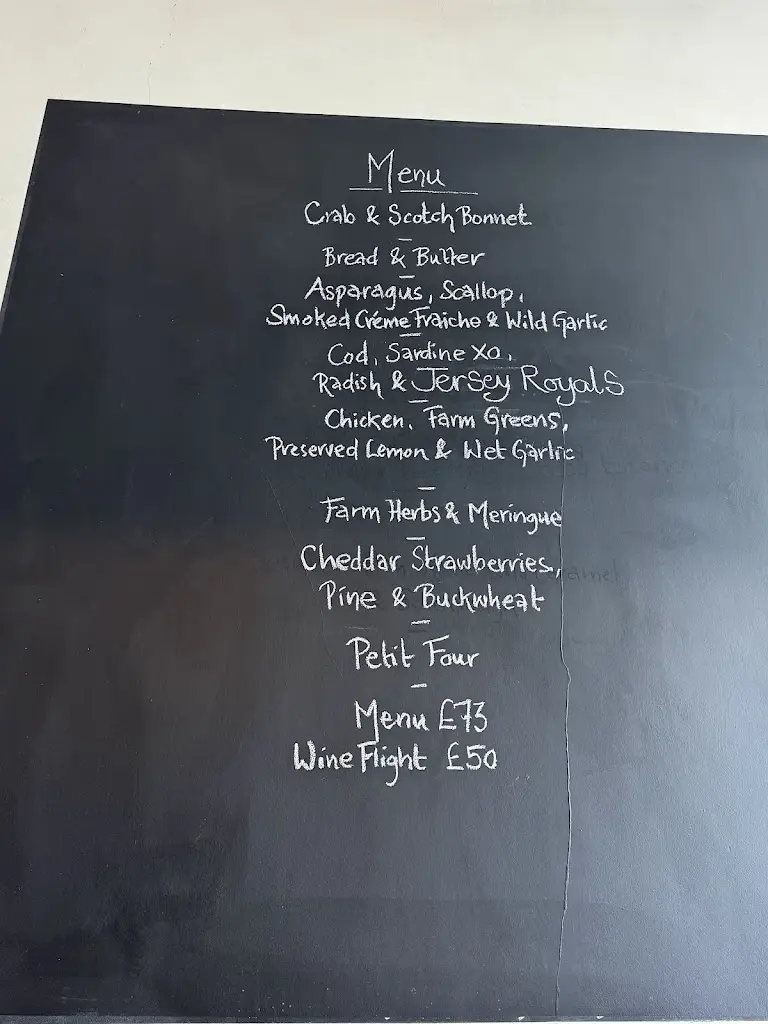 Menu
Crab & Scotch Bonnet
–
Bread & Butter
–
Asparagus, Scallop,
Smoked Créme Fraiche & Wild Garlic
–
Cod, Sardine XO,
Radish & Jersey Royals
–
Chicken, Farm Greens,
Preserved Lemon & Wet Garlic
–
Farm Herbs & Meringue
–
Cheddar Strawberries,
Pine & Buckwheat
–
Petit Four
–
Menu £73
Wine Flight £50